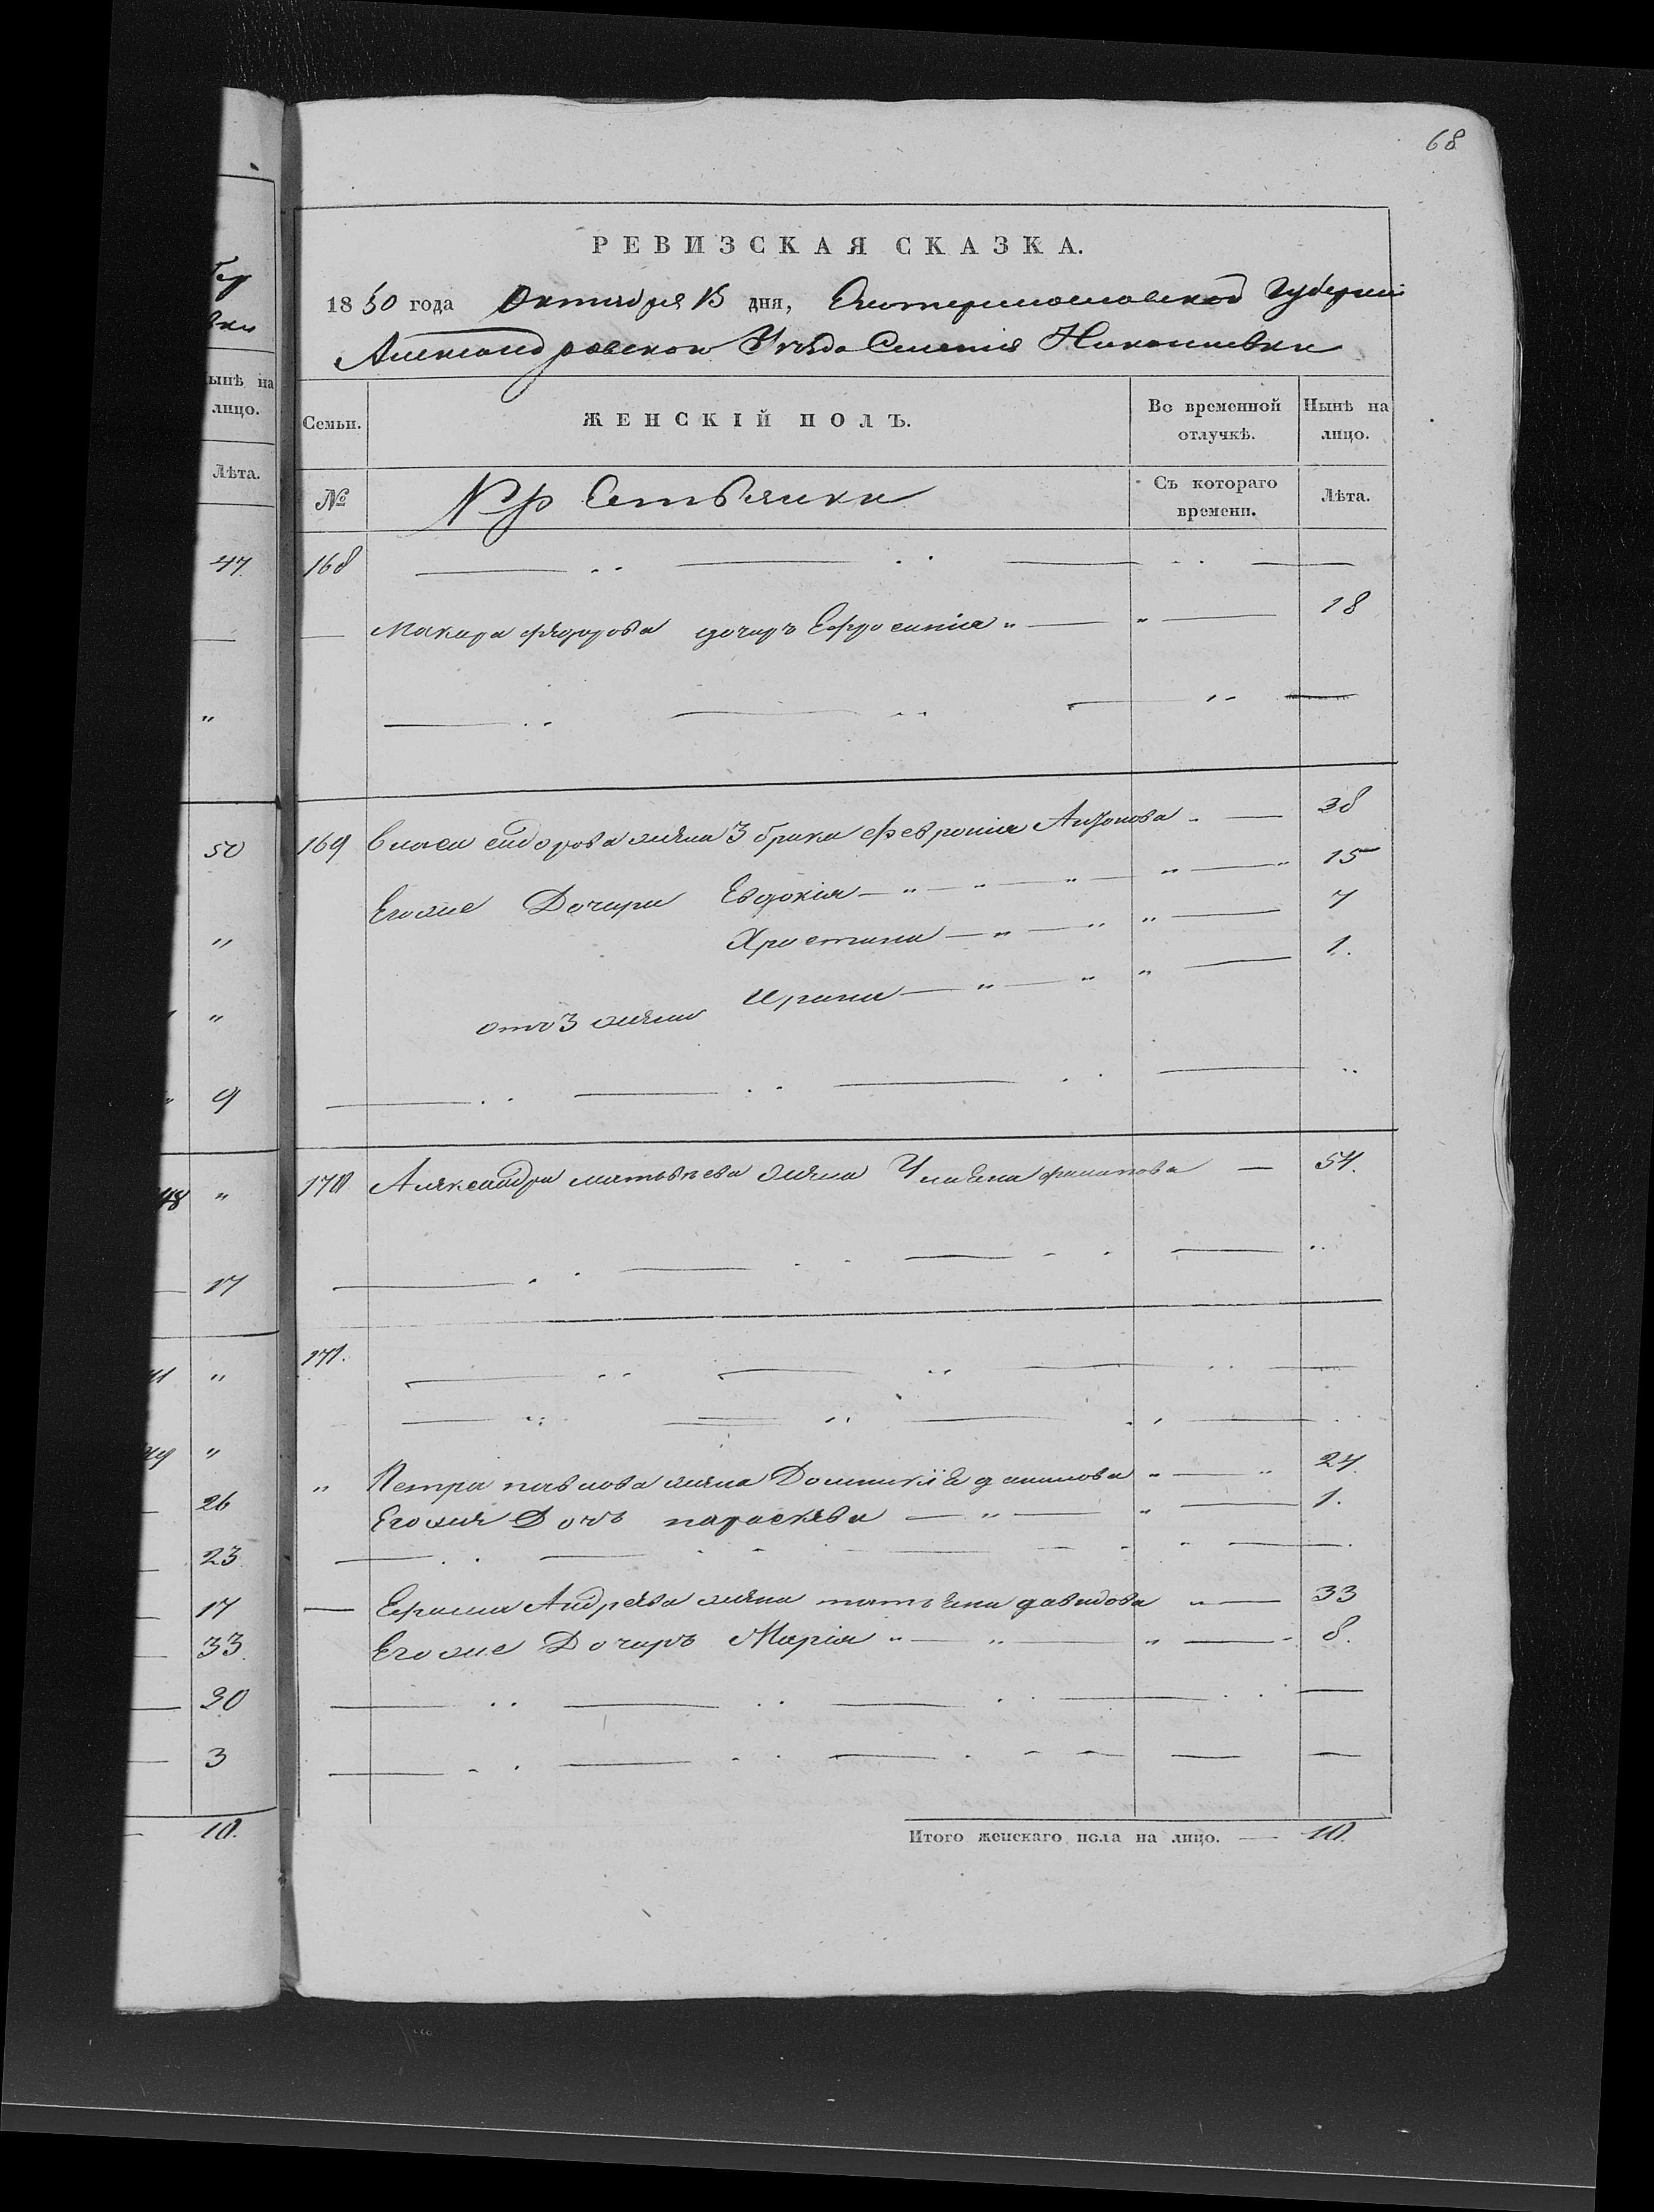 68
РЕВИЗСКАЯ СКАЗКА.
1850 года Октября 15 дня, Екатеринославской Губернии
Александровского Уезда Селения Николаевки
Семьи. ЖЕНСКІЙ ПОЛЪ. Во временной отлучкѣ. Нынѣ на лицо.
№ Крестьянки Съ котораго времени. Лѣта.
168
Макара Федорова дочерь Ефросинія 18
169 Власа Сидорова жена 3 брака Феврония Антонова 38
Его же Дочери Евдокія 15
Христина 7
от 3 жены Ирина 1.
170 Александра Матвѣева жена Ульяна Филипова 54.
171.
Петра Павлова жена Домникія Данилова 24
Его же Дочь Параскева 1.
Ефима Андреева жена Татьяна Давидова 33
Его же Дочерь Марія 8.
Итого женскаго пола на лицо. — 10.
ынѣ на
лицо.
Лѣта.
47
50
9
48
17
26
23
17
33.
3
10.